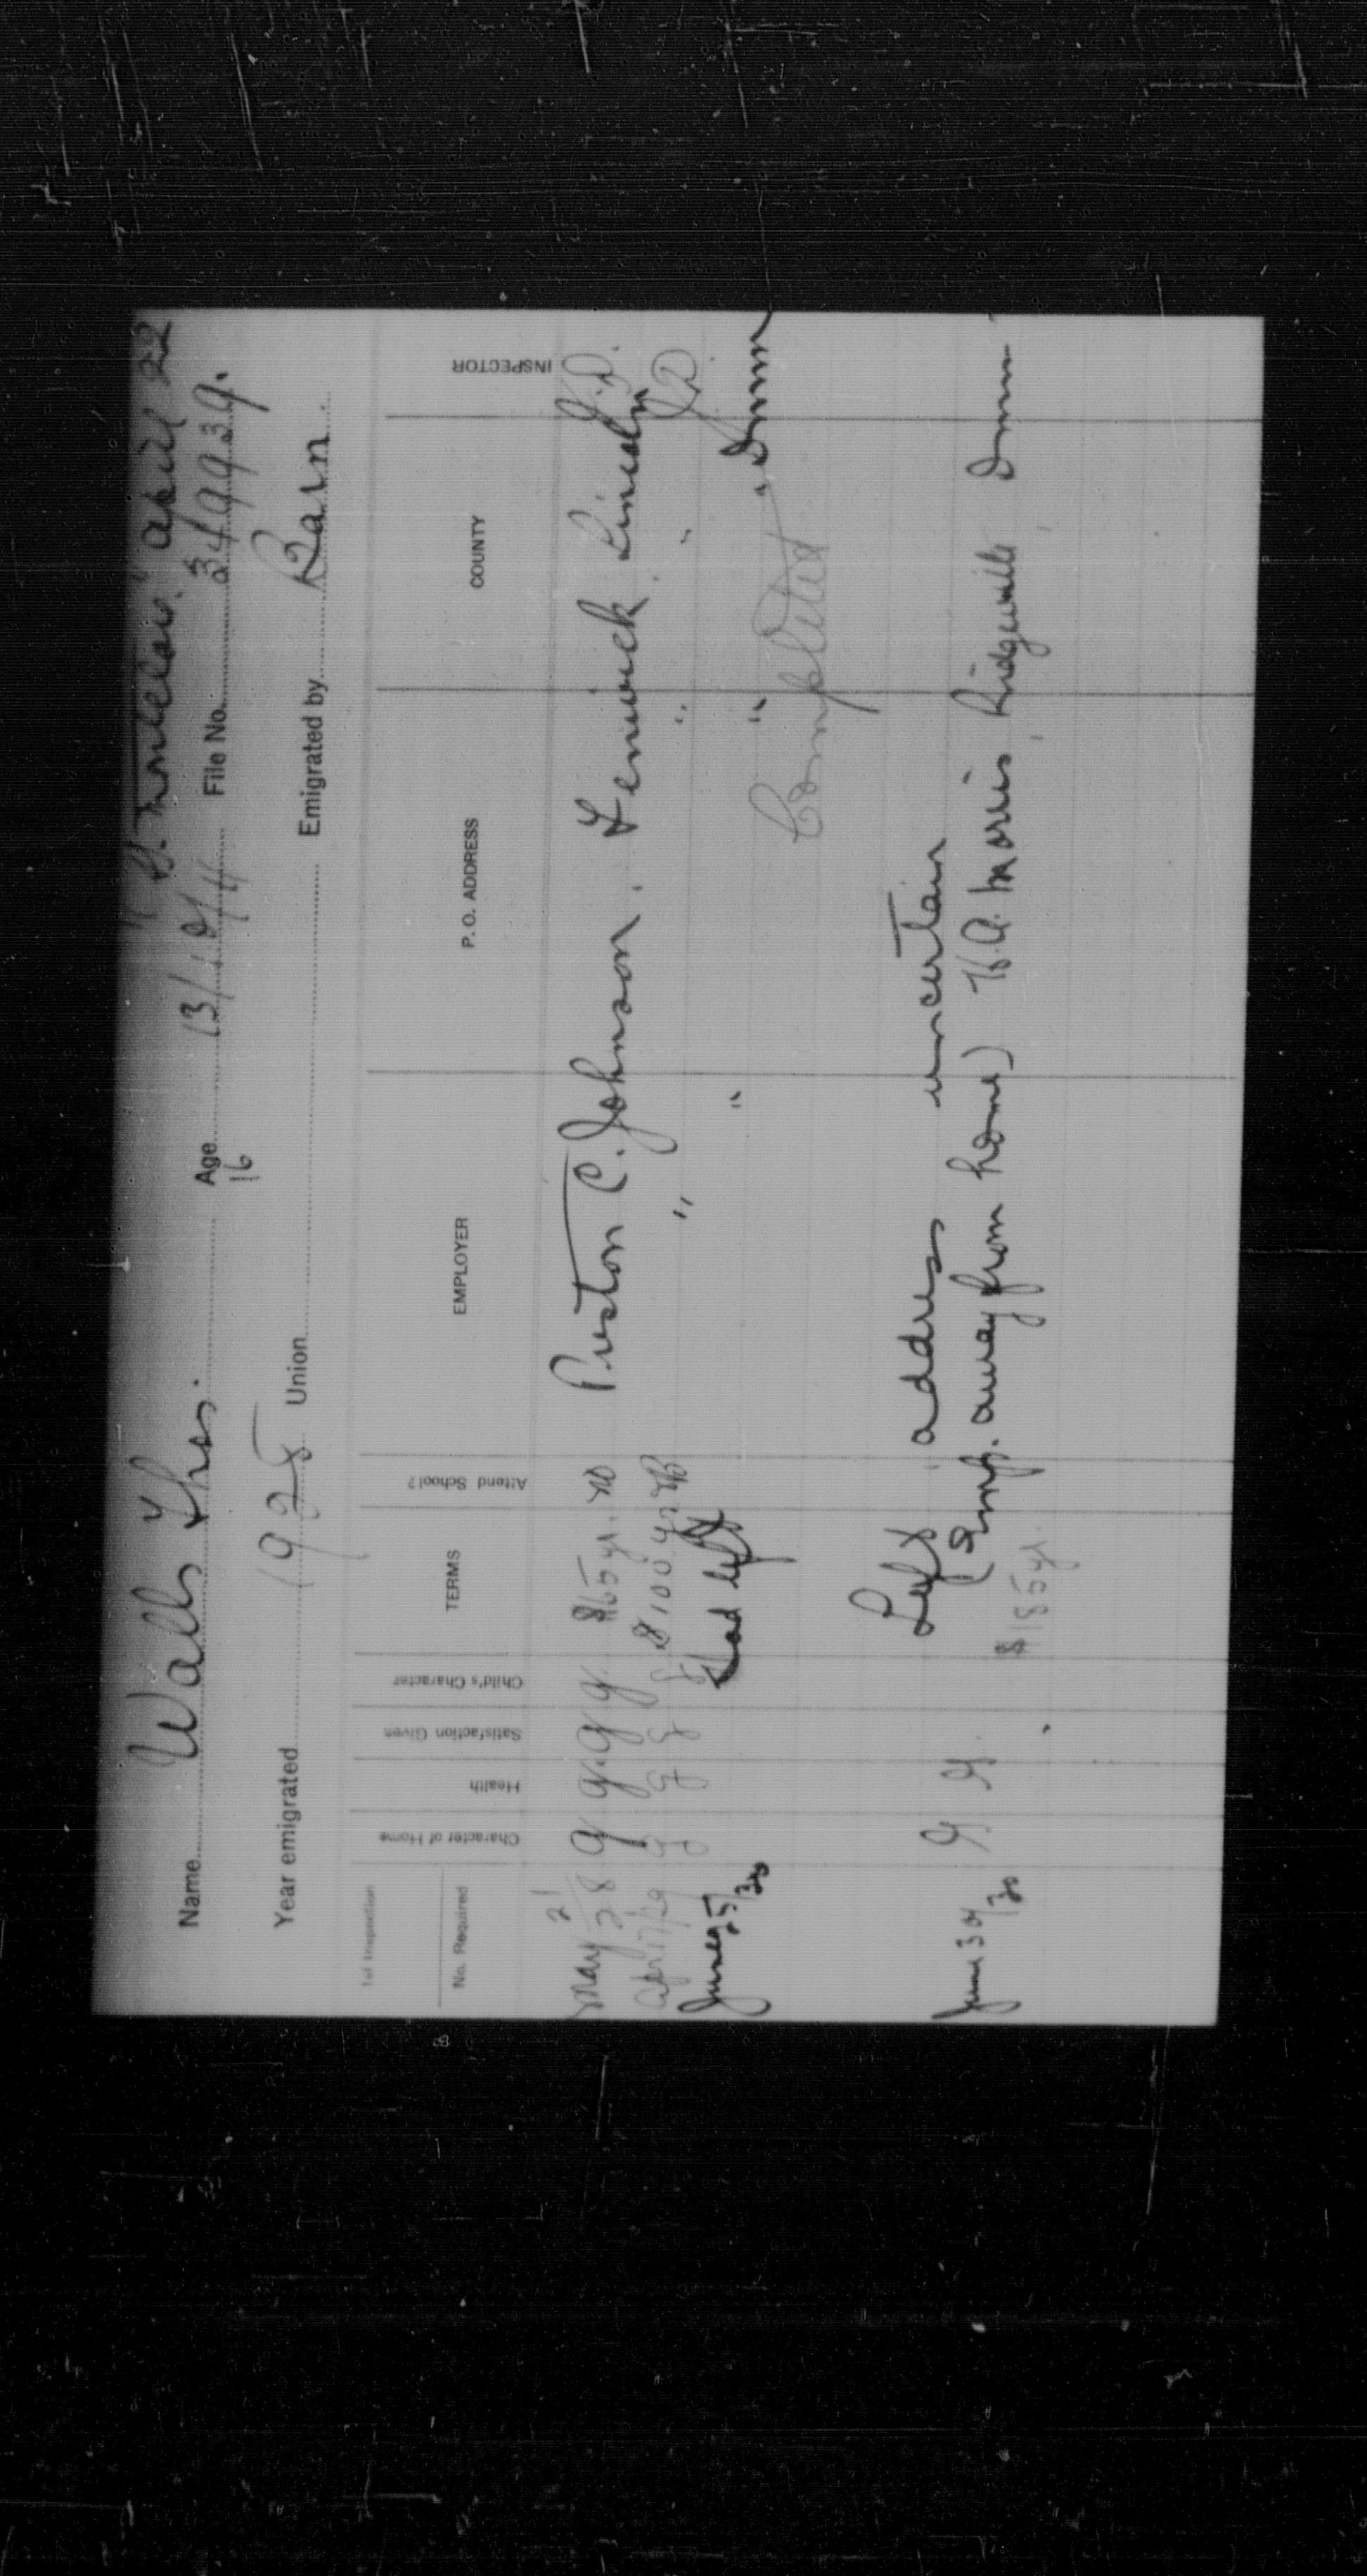 "S. Montclair" April 22
Name Walls Thos. Age 13/12/11 File No. 349939.
16
Year emigrated 1928 Union Emigrated by Barn
1st Inspection
No. Required Character of Home Health Satisfaction Given Child's Character TERMS Attend School? EMPLOYER P. O. ADDRESS COUNTY INSPECTOR
May 21/28 g g. g g. $65 yr. no Preston C. Johnson. Fenwick Lincoln J.D.
Apr 17/29 g g g g $100 yr no " " " J.D.
June 25/30 Had left " " " Dunn
Completed
Left address uncertain
June 30/30 G. G. (Emp. away from home) H. A. Morris Ridgeville Dunn
$185 yr.